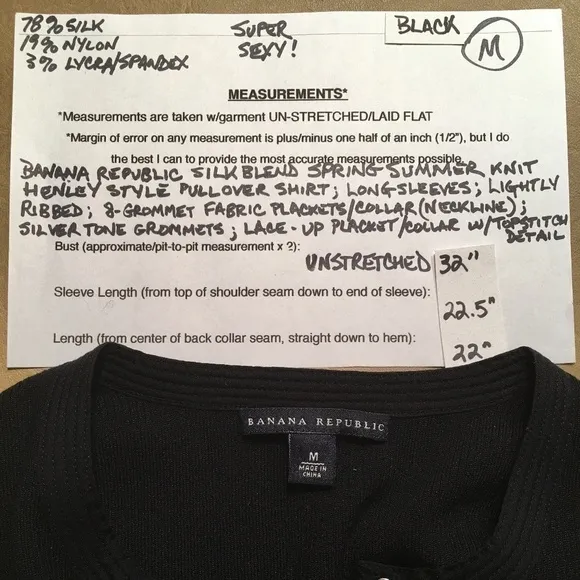 78% SILK
19% NYLON
3% LYCRA/SPANDEX
SUPER
SEXY!
BLACK
M
MEASUREMENTS*
*Measurements are taken w/garment UN-STRETCHED/LAID FLAT
*Margin of error on any measurement is plus/minus one half of an inch (1/2"), but I do
the best I can to provide the most accurate measurements possible.
BANANA REPUBLIC SILK BLEND SPRING SUMMER KNIT
HENLEY STYLE PULLOVER SHIRT; LONG-SLEEVES; LIGHTLY
RIBBED; 8-GROMMET FABRIC PLACKETS/COLLAR (NECKLINE);
SILVER TONE GROMMETS; LACE-UP PLACKET/COLLAR W/TOPSTITCH
DETAIL
Bust (approximate/pit-to-pit measurement x 2):
UNSTRETCHED 32"
Sleeve Length (from top of shoulder seam down to end of sleeve):
22.5"
Length (from center of back collar seam, straight down to hem):
22"
BANANA REPUBLIC
M
MADE IN
CHINA